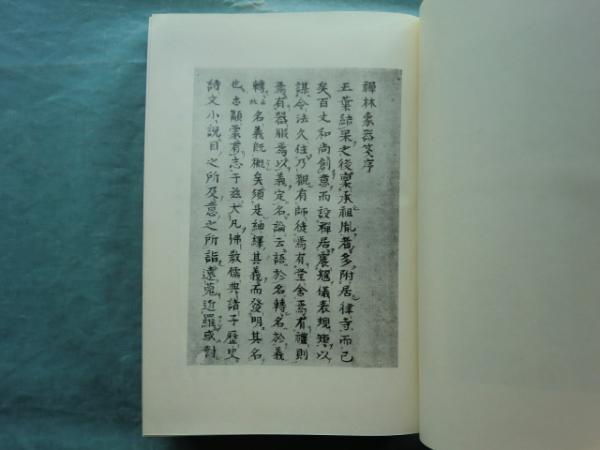 禪林象器箋序
五葉結果之後稟承祖胤者多附居律寺而已
矣百丈和尚創意而設禪居襃𠖥儀表規矩以
謀令法久住乃觀有師徒焉有堂舍焉有禮則
焉有器服焉以義定名論云語於名轉名於義
轉故名義既徹矣須是紬繹其義而發明其名
也忠顓蒙有志于茲大凡佛敎儒典諸子歷史
詩文小說目之所及意之所詣遠蒐近羅或對